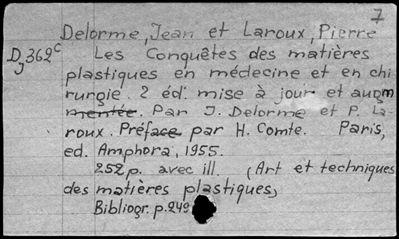 7
Delorme, Jean et Laroux, Pierre
Dj 362 c
Les Conquêtes des matières
plastiques en médecine et en chi
rurgie. 2 éd. mise à jour et augm
mentée. Par J. Delorme et P. La-
roux. Préface par H. Comte. Paris,
ed. Amphora, 1955.
252 p. avec ill. (Art et techniques
des matières plastiques)
Bibliogr. p. 249